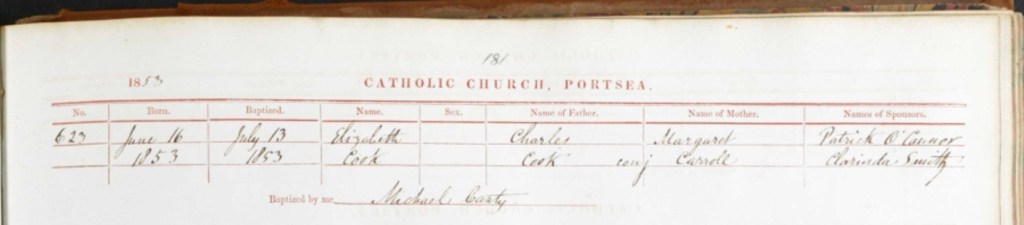 181
1853 CATHOLIC CHURCH, PORTSEA.
No. Born. Baptized. Name. Sex. Name of Father. Name of Mother. Names of Sponsors.
623 June 16 July 13 Elizabeth Charles Margaret Patrick O'Connor
1853 1853 Cook Cook conj Carroll Clarinda Smith
Baptized by me Michael Canty